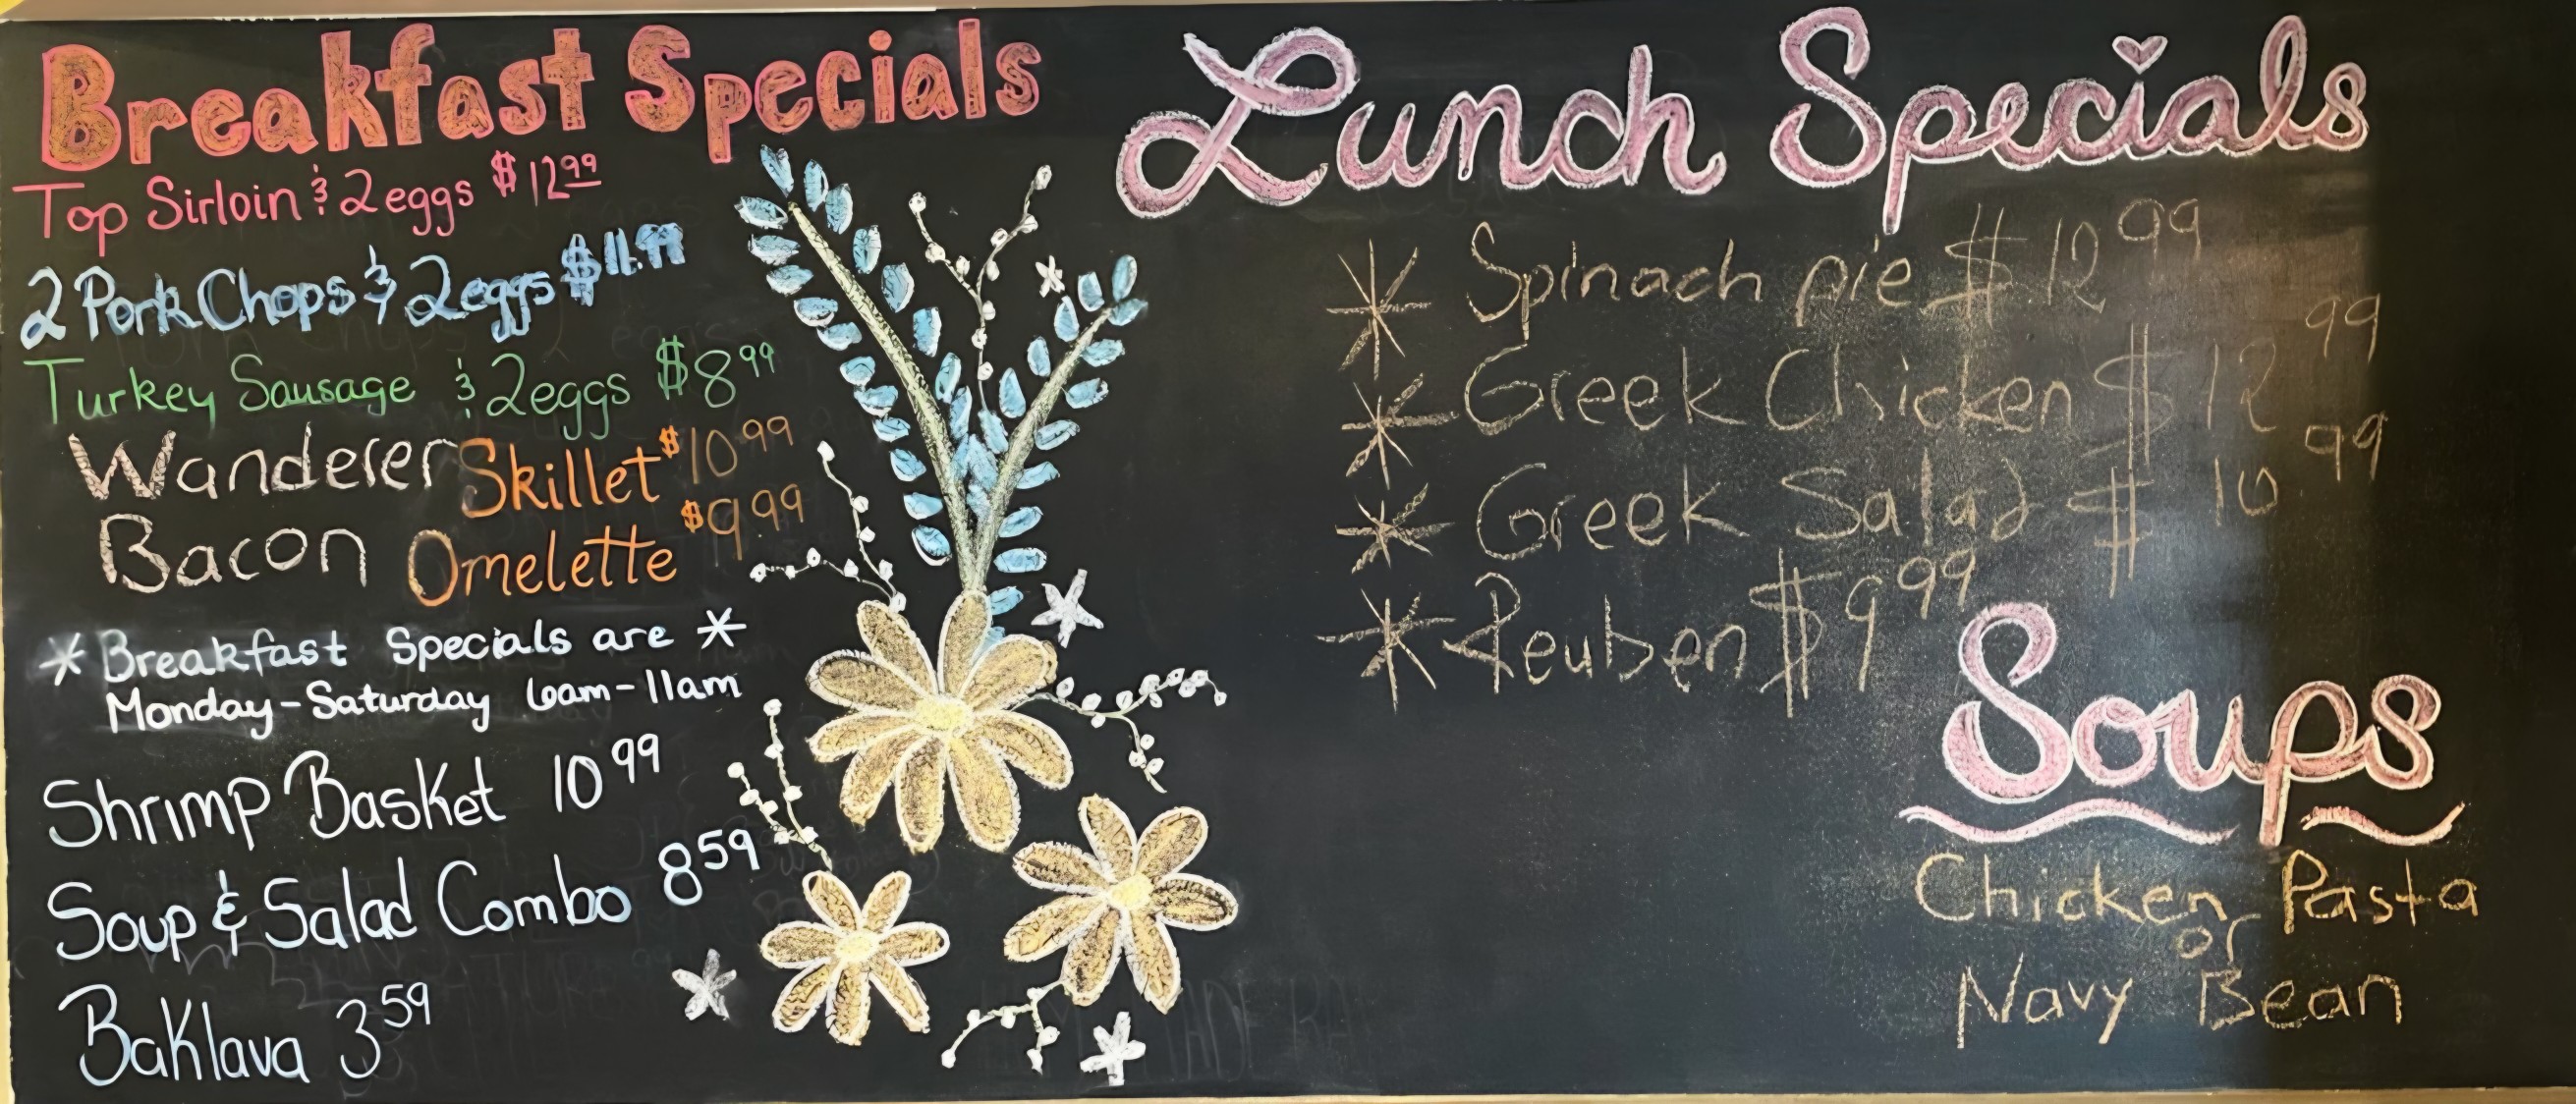 Breakfast Specials
Top Sirloin & 2 eggs $12.99
2 Pork Chops & 2 eggs $11.99
Turkey Sausage & 2 eggs $8.99
Wanderer Skillet $10.99
Bacon Omelette $9.99
* Breakfast Specials are *
Monday-Saturday 6am-11am
Shrimp Basket 10.99
Soup & Salad Combo 8.59
Baklava 3.59
Lunch Specials
* Spinach pie $12.99
* Greek Chicken $12.99
* Greek Salad $10.99
* Reuben $9.99
Soups
Chicken Pasta
or
Navy Bean